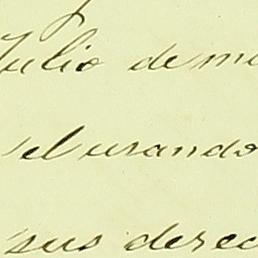 Julio de mi
el usando
sus derec